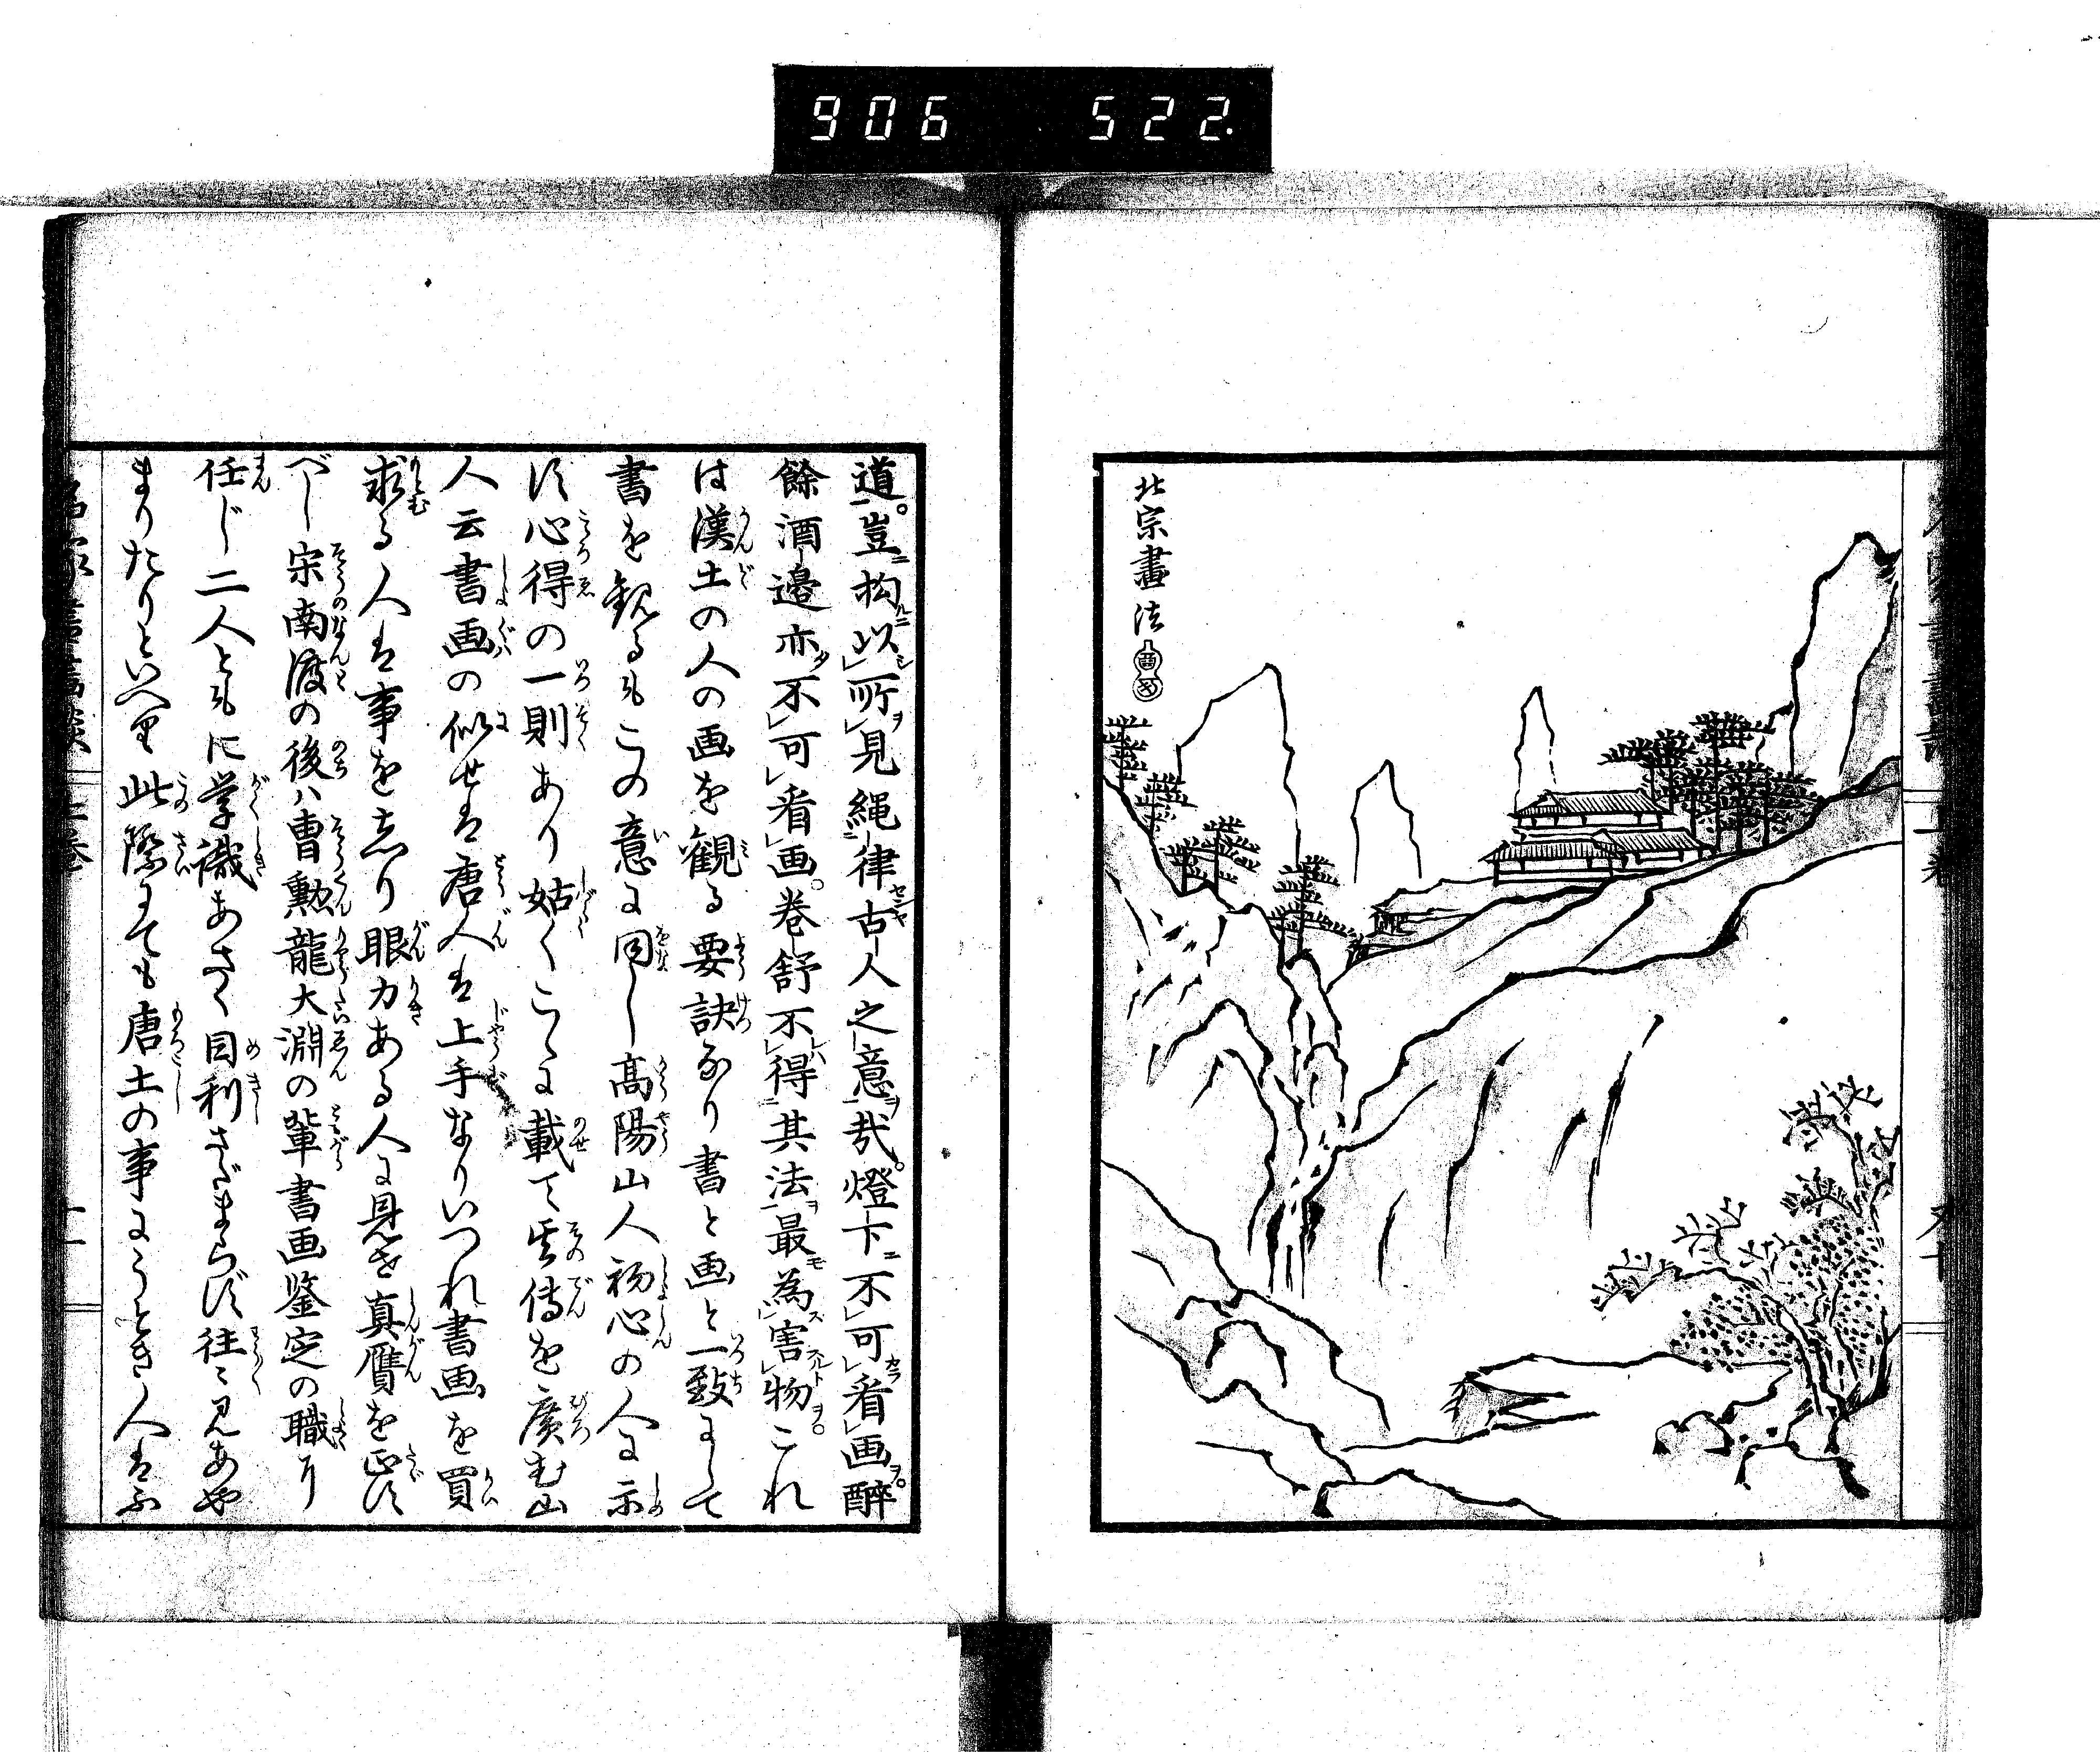 906 522
北宗畫法
道。豈ニ拘ルニ以シ所ヲ見繩律セン古人之意ヲ哉。燈下ニ不可カラ看画ヲ。醉
餘酒邊亦タ不可看画。卷舒不レハ得其法ヲ最モ為ス害スルト物ヲ。これ
は漢土の人の画を観る要訣なり書と画と一致にして
書を観るもこの意に同し高陽山人初心の人に示
す心得の一則あり姑くこゝに載て其傳を廣む山
人云書画の似せは唐人は上手なりいつれ書画を買
求る人は事をしり眼力ある人に見せ真贋を正す
べし宋南渡の後ハ曹勲龍大淵の輩書画鉴定の職に
任じ二人ともに学識あさく目利さだまらず往〻見あや
まりたりといへり此際にても唐土の事にうとき人はふ